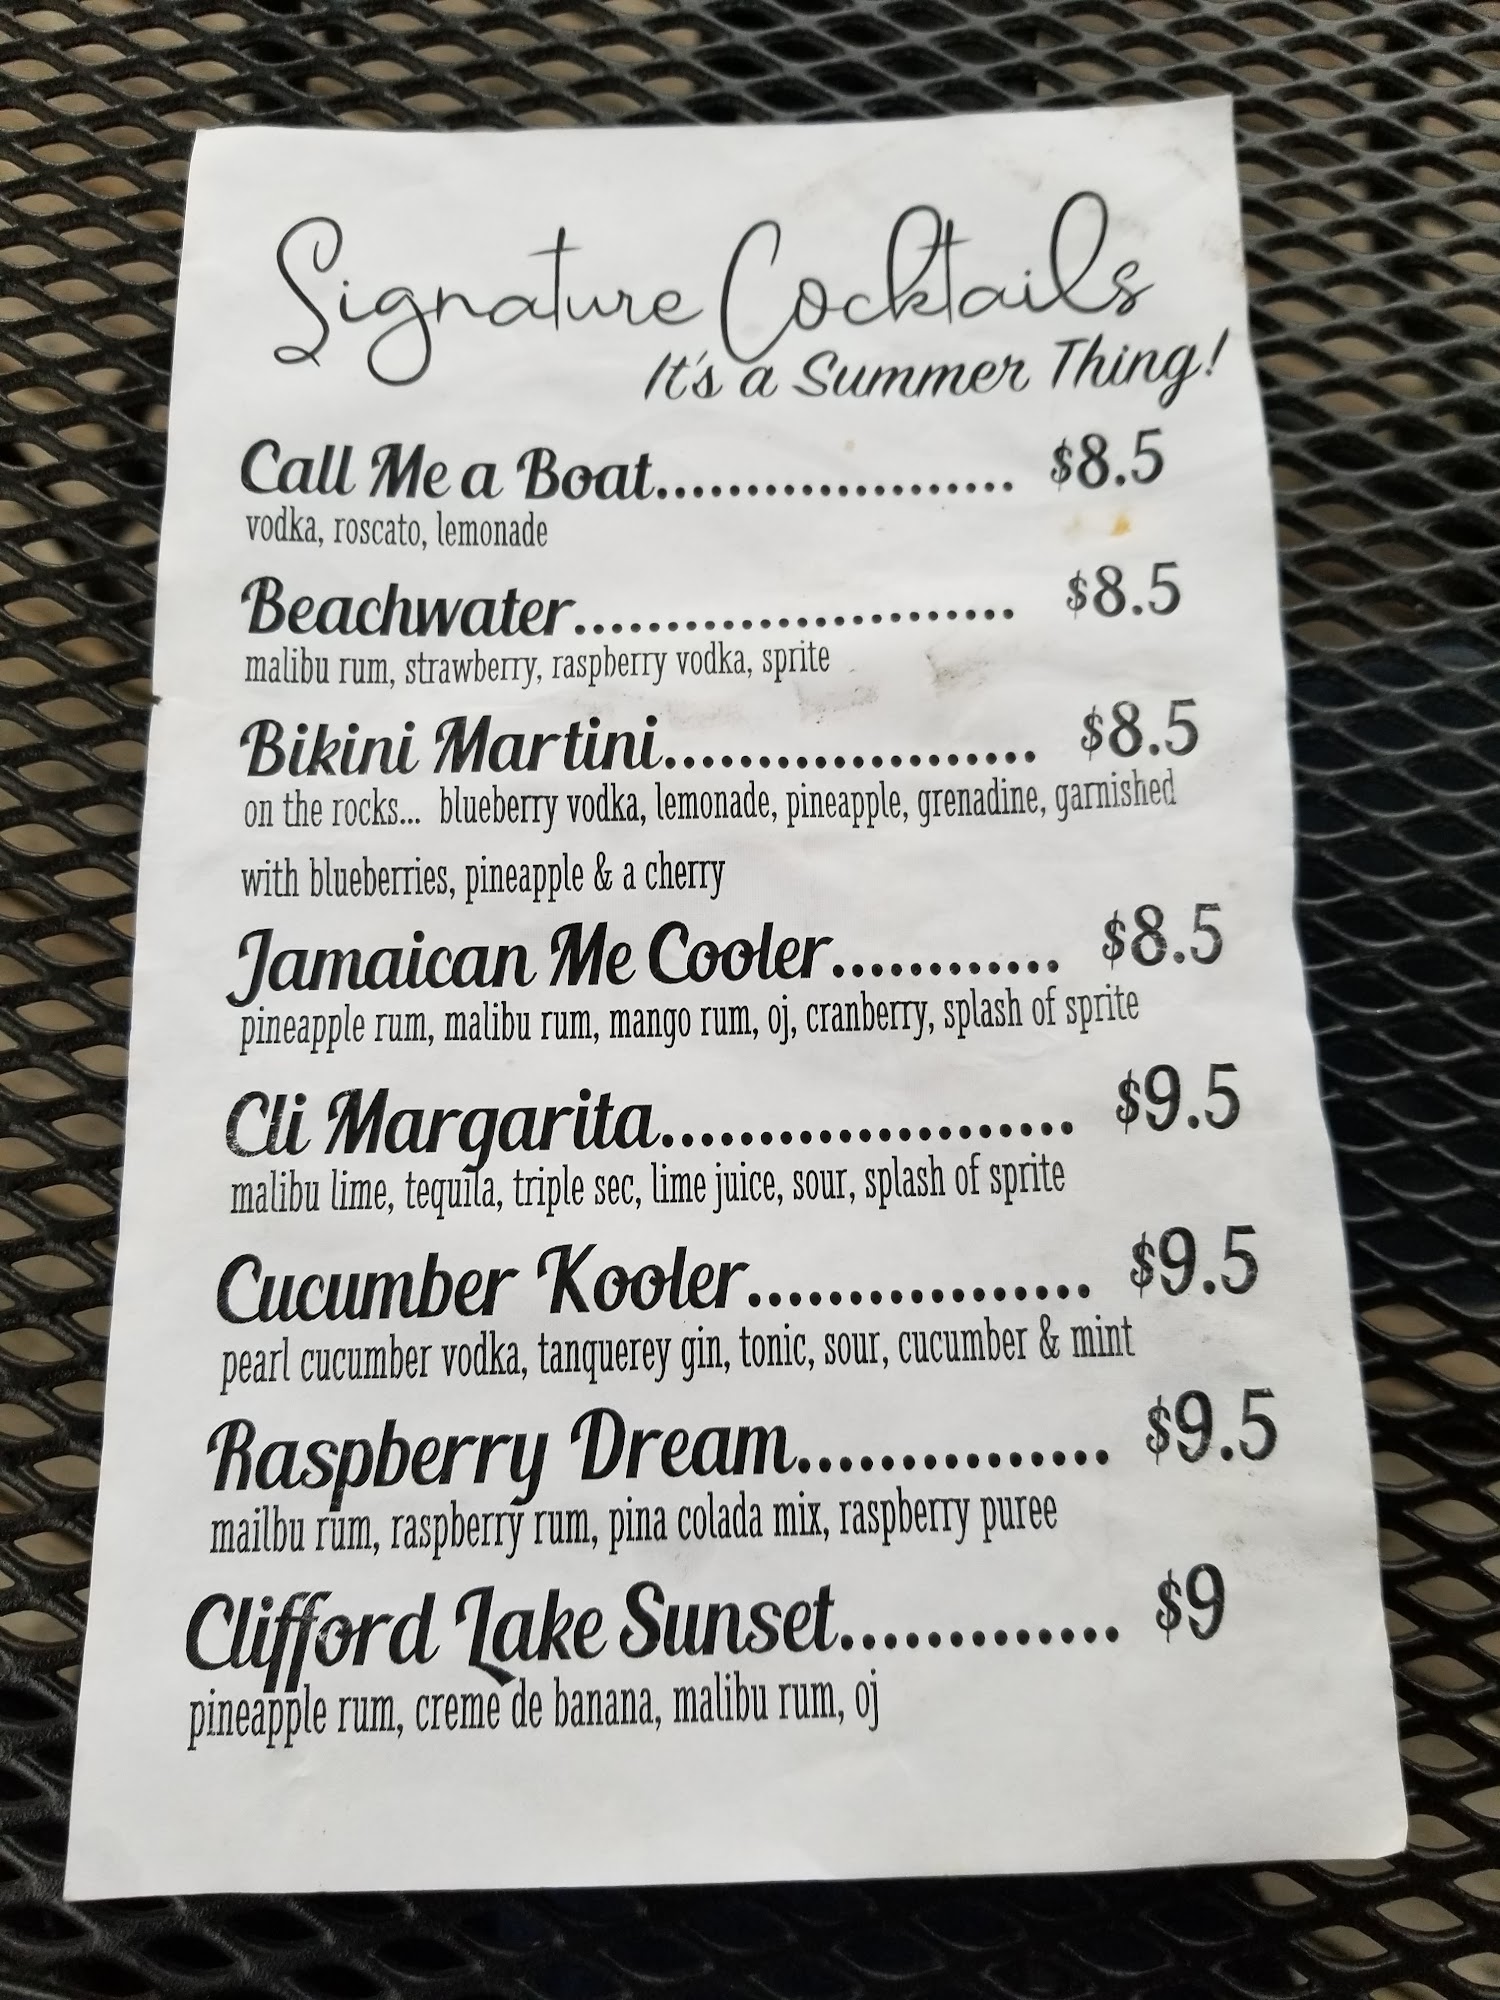 Signature Cocktails
It's a Summer Thing!
Call Me a Boat..................... $8.5
vodka, roscato, lemonade
Beachwater........................ $8.5
malibu rum, strawberry, raspberry vodka, sprite
Bikini Martini..................... $8.5
on the rocks... blueberry vodka, lemonade, pineapple, grenadine, garnished
with blueberries, pineapple & a cherry
Jamaican Me Cooler............ $8.5
pineapple rum, malibu rum, mango rum, oj, cranberry, splash of sprite
Cli Margarita..................... $9.5
malibu lime, tequila, triple sec, lime juice, sour, splash of sprite
Cucumber Kooler................. $9.5
pearl cucumber vodka, tanquerey gin, tonic, sour, cucumber & mint
Raspberry Dream............... $9.5
mailbu rum, raspberry rum, pina colada mix, raspberry puree
Clifford Lake Sunset............. $9
pineapple rum, creme de banana, malibu rum, oj